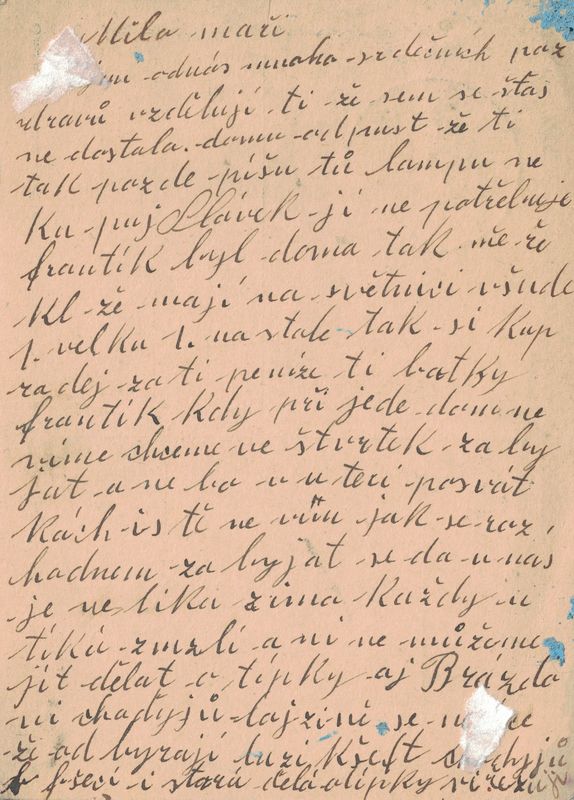 Milá maři
odnás mnoho srdečních poz
zdravů vzděluji ti že sem se štas
ne dostala domu odpust že ti
tak pozde píšu tů lampu ne
ku puj Slávek jí ne potřebuje
frantík byl doma tak mě ře
kl že mají na světnici všude
1. velku 1. na stole tak si kup
radej zati peníze ti botky
frantík kdy při jede domu ne
víme chceme ve štvrtek zaby
jat a ne bo v u teri posvát
kách is tě ne vím jak se roz
hodnem zabyjat se da u nás
je velika zima každy u
tíká zmrzlí a ni ne můžeme
jít dělat o típky aj Brázdo
vi chodyjů lajzině se
že od byrají luzi kšeft chodyjů
fšeci i stará čelá otípky vířezují